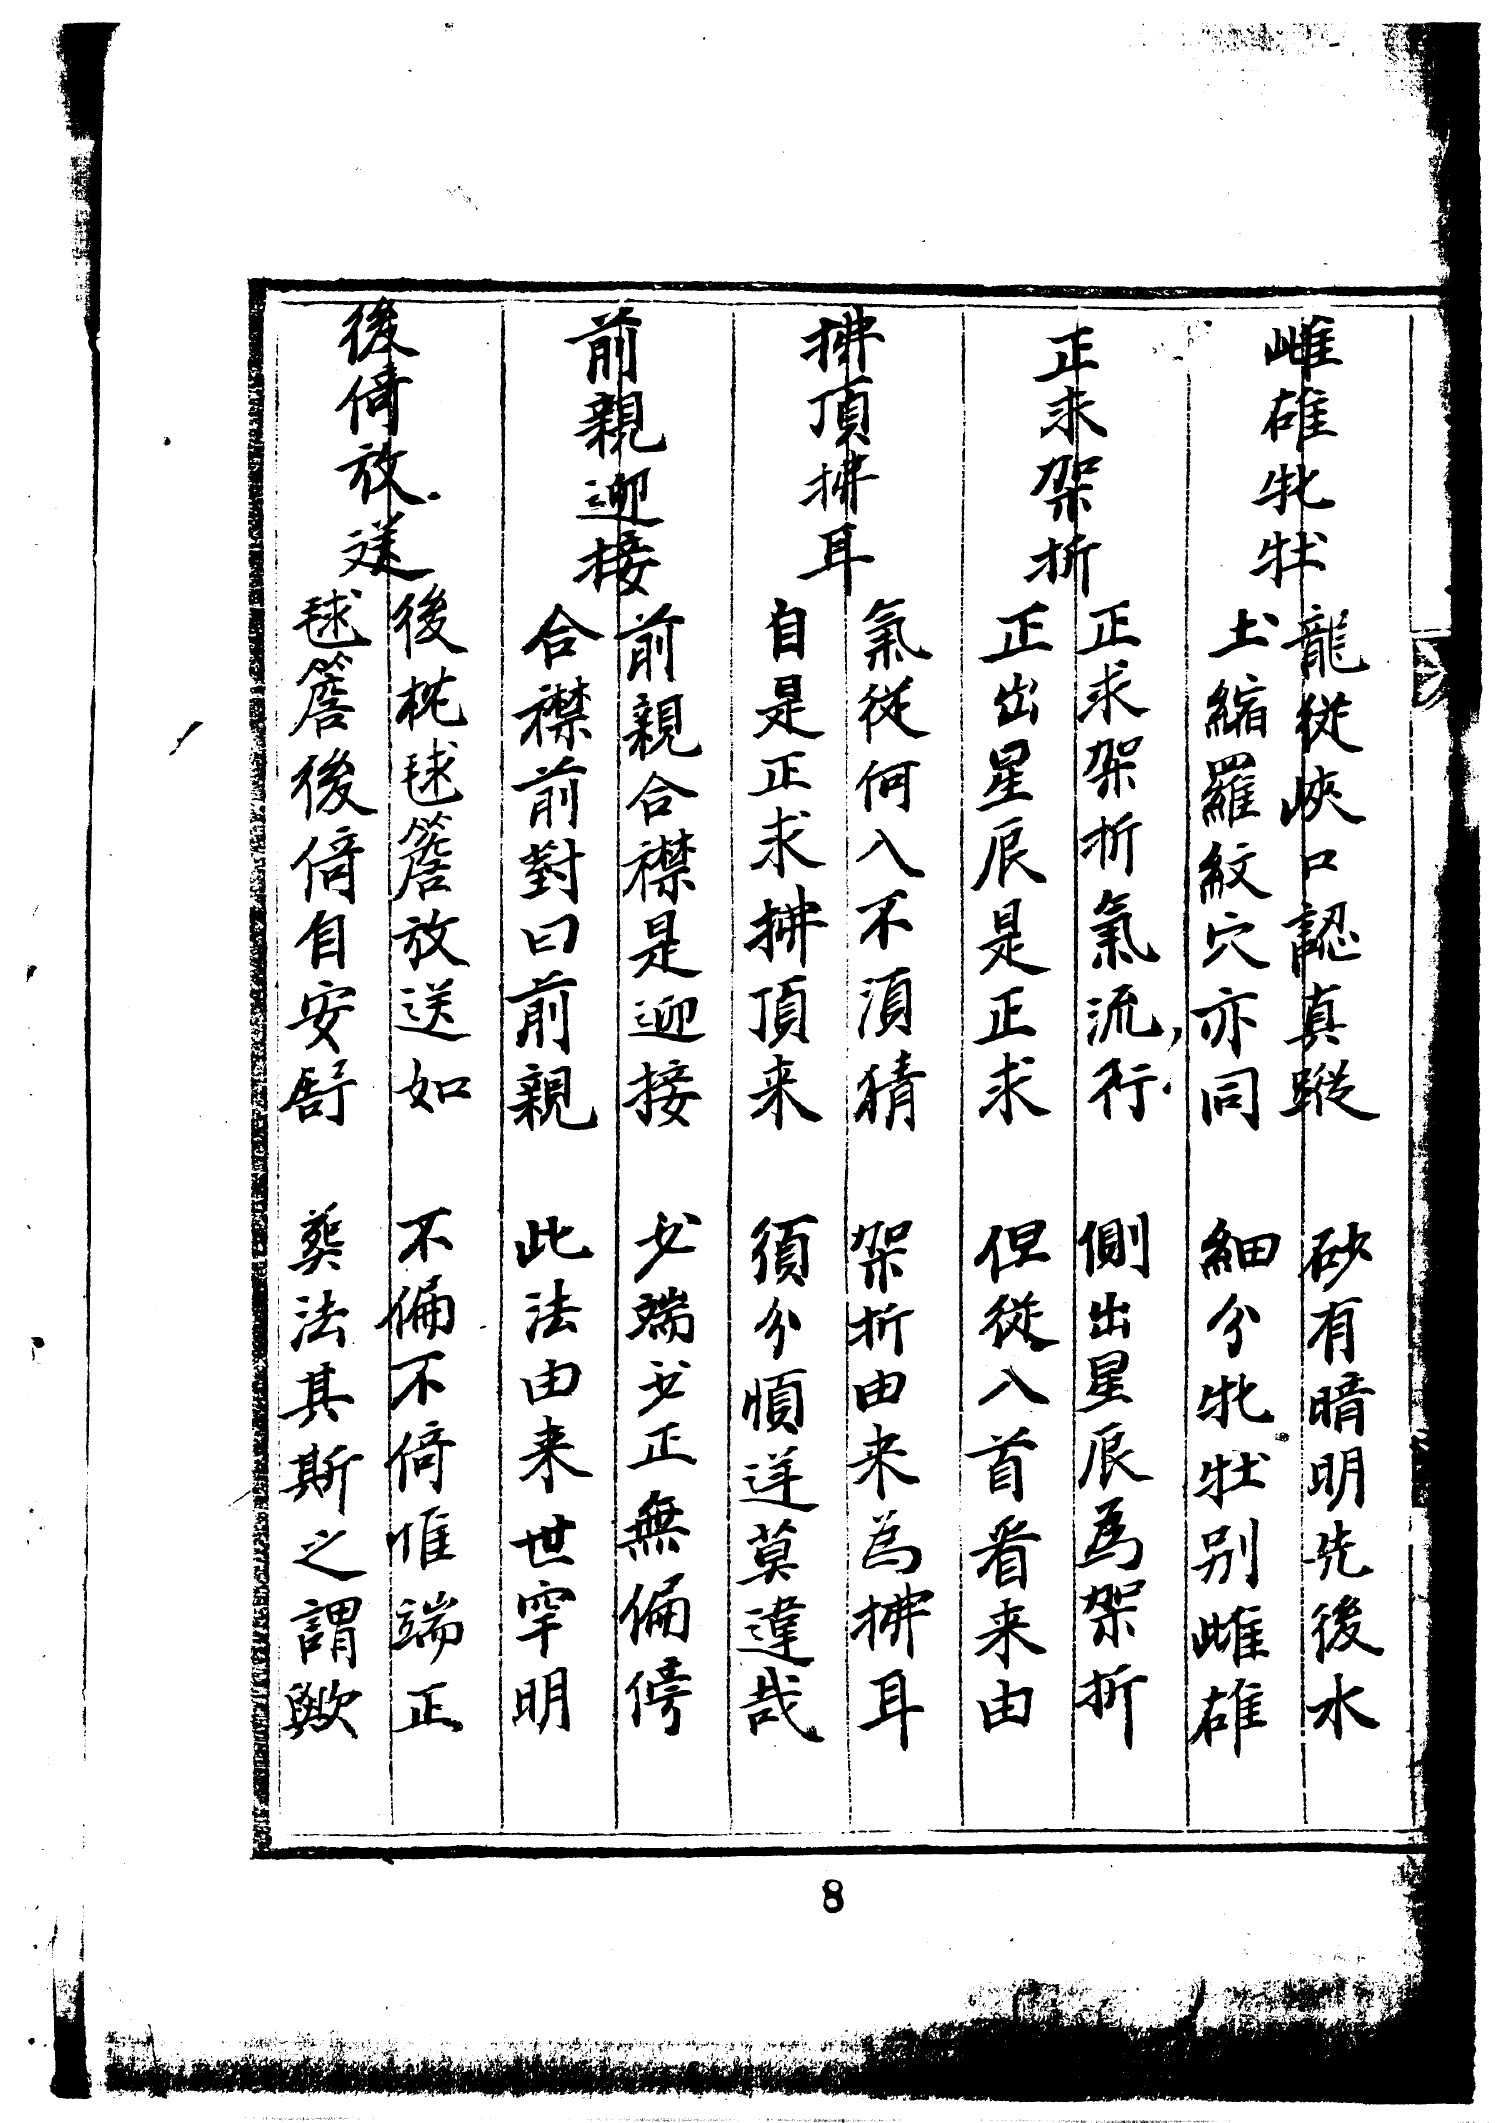 雌雄牝牡
龍從峽口認真蹤　砂有暗明先後水
土縮羅紋穴亦同　細分牝牡别雌雄
正求架折
正求架折氣流行　側出星辰為架折
正出星辰是正求　但從八首看来由
拂頂拂耳
氣從何入不湏猜　架折由来為拂耳
自是正求拂頂来　須分順逆莫違哉
前親迎接
前親合襟是迎接　必端必正無偏傍
合襟前對曰前親　此法由来世罕明
後倚放送
後枕毬簷放送如　不偏不倚惟端正
毬簷後倚自安舒　葬法其斯之謂歟
8